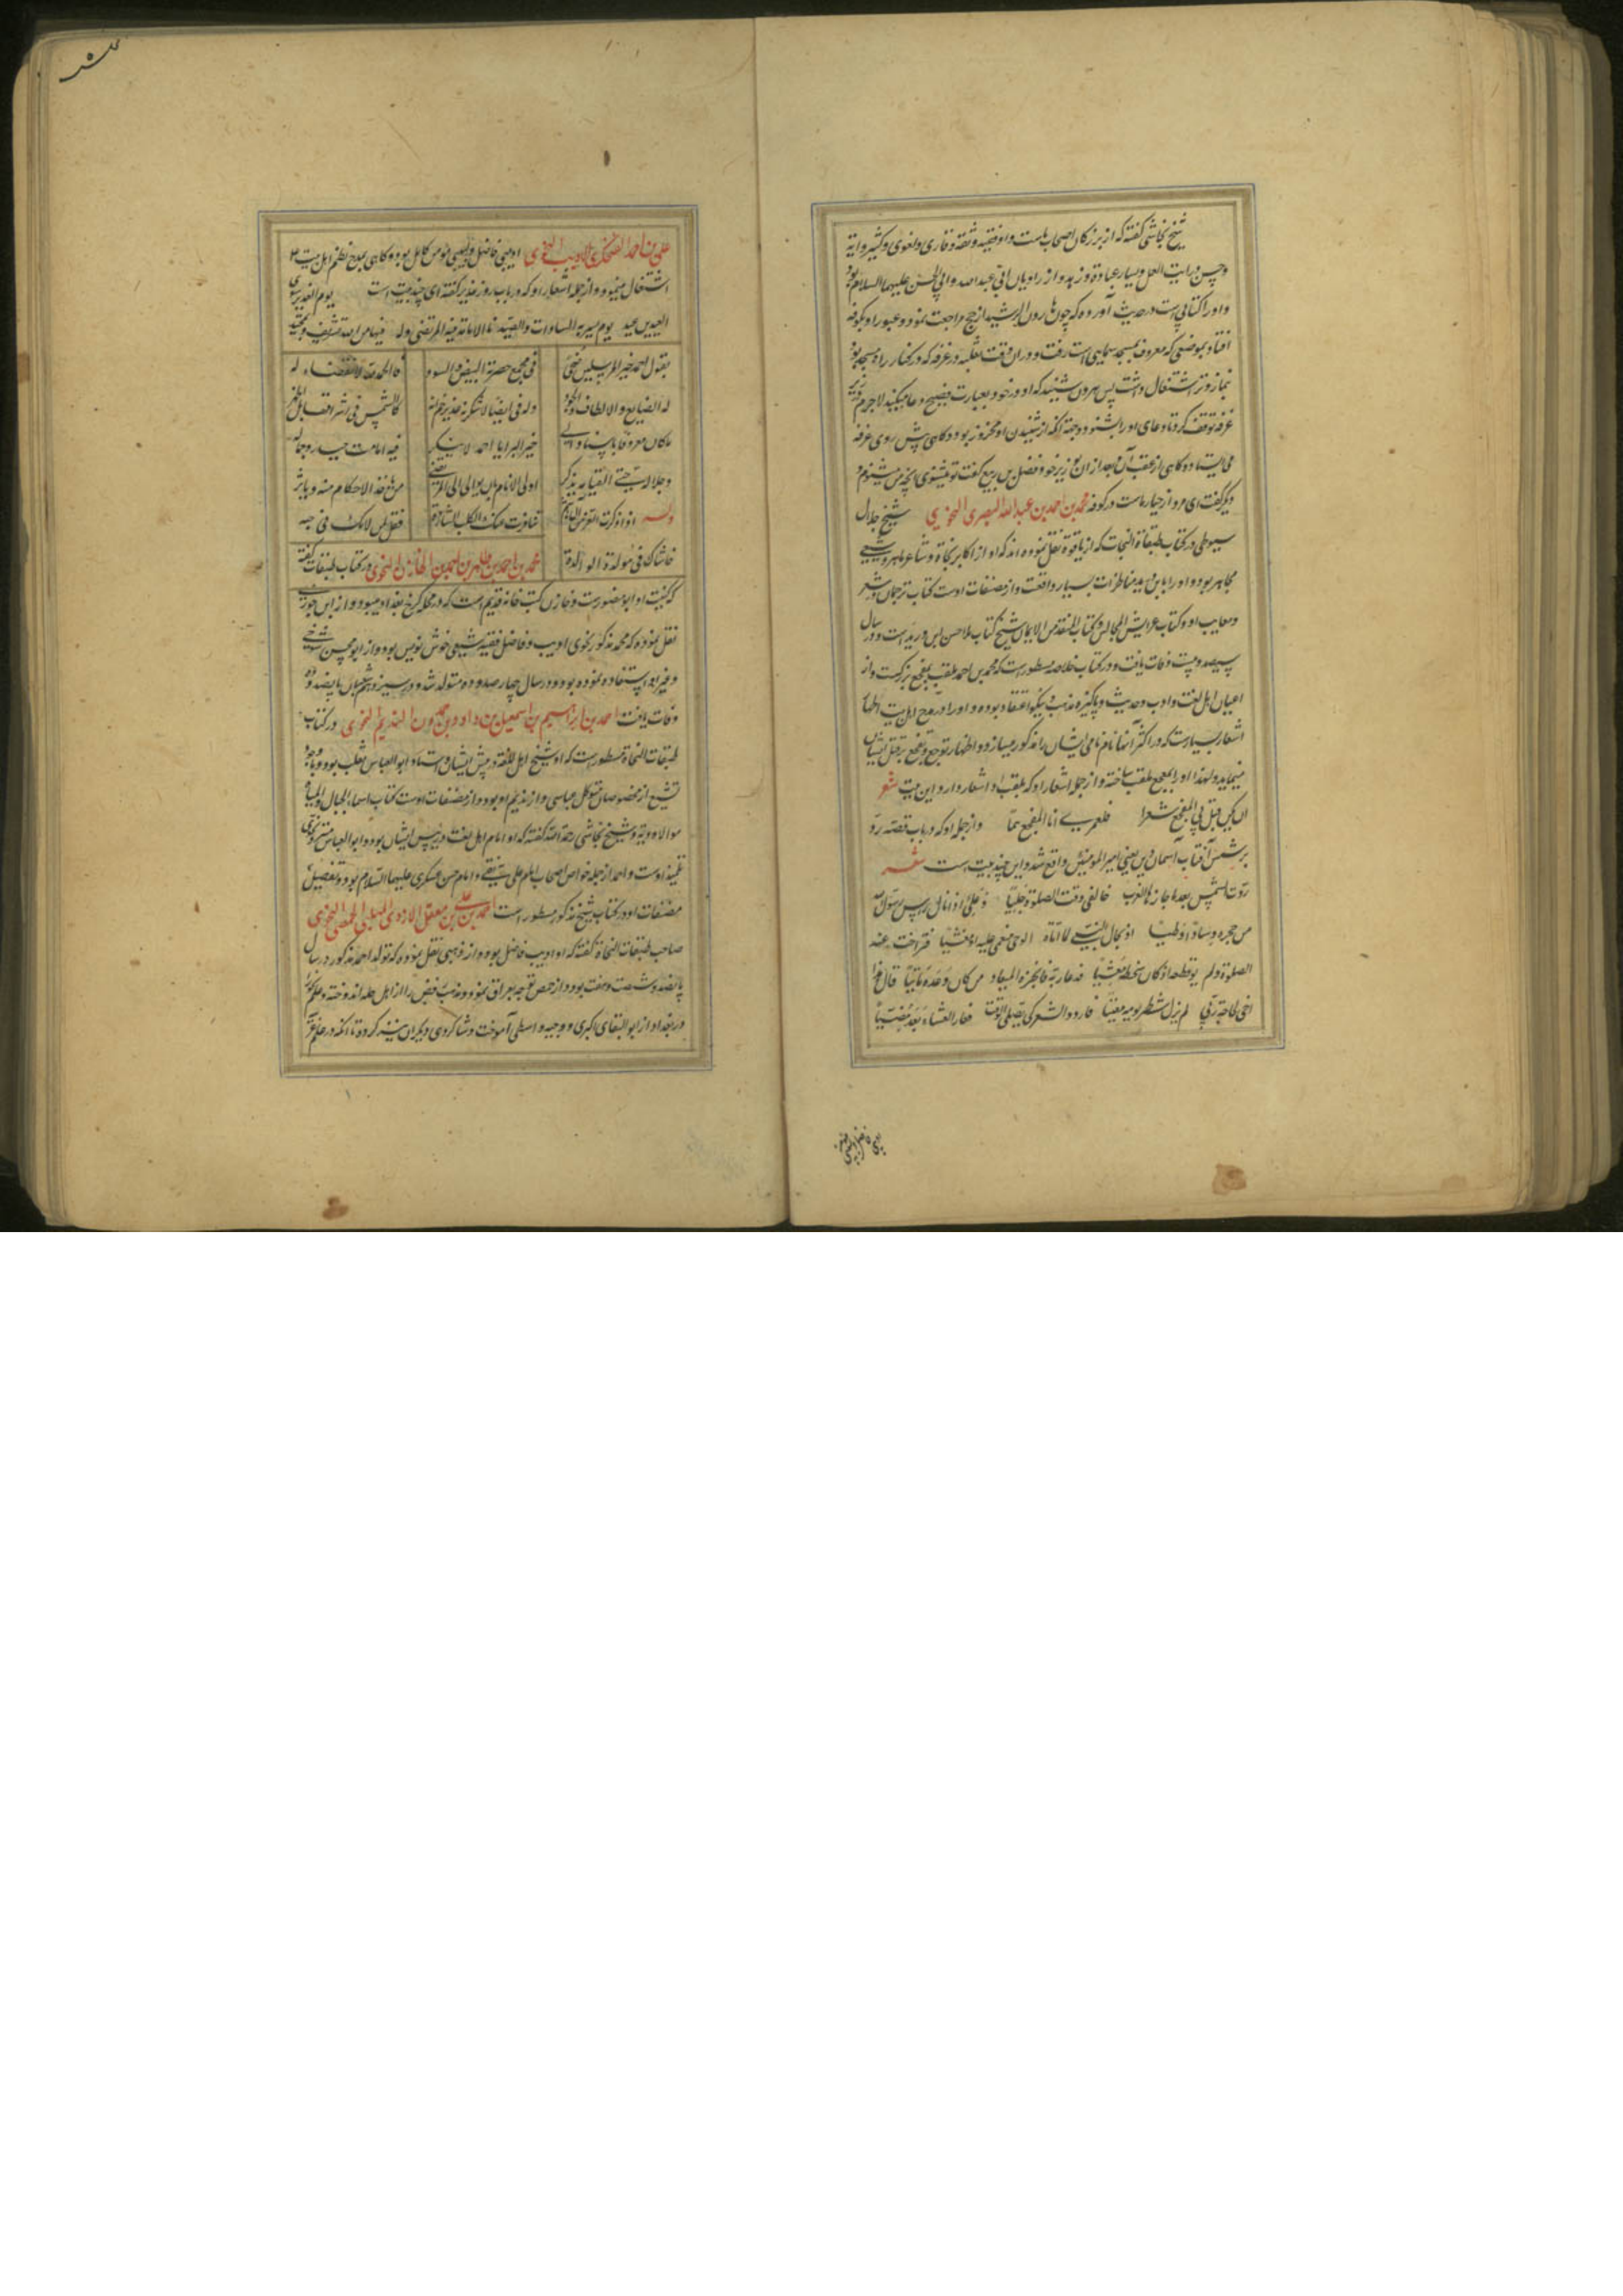 شیخ نجاشی گفته که از بزرگان اصحاب ماست و او فقیه و ثقه و قاری و لغوی و کثیر روایة
و حسن درایت العمل و بسیار عبادة و زهد و از راویان ابی عبد الله و ابی الحسن علیهما السلام بود
و او را کتابی است در حدیث آورده که چون هارون الرشید از حج مراجعت نمود و عبور او بکوفه
افتاد بموضعی که معروف بمسجد سماعی است رفت و در آن وقت ثعلبه در غرفه که در کنار راه مسجد بود
بنماز وتر اشتغال داشت پس هارون شنید که او در خود بعبارت فصیح دعا میکند لاجرم در زیر
غرفه توقف کرد تا دعای او را بشنود و بجهة آنکه از شنیدن او محزوز بود و گاهی پیش روی غرفه
می ایستاد و گاهی از عقب آن و بعد از آن بوزیر خود فضل بن ربیع گفت تو میشنوی آنچه من میشنوم و
دیگر گفت ای مرد از خیار ماست در کوفه محمد بن احمد بن عبد الله البصری النحوی شیخ جلال
سیوطی در کتاب طبقات النحات که از یاقوة نقل نموده اند که او از اکابر نحاة و شاعر ماهر و شیعی
مجاهر بود و او را با ابن درید مناظرات بسیار واقعست و از مصنفات اوست کتاب ترجمان در شعر
و معایب او و کتاب عرایش المجالس و کتاب المنقذ من الایمان شیخ کتاب ملاحسن ابن درید است و در سال
سیصد و بیست وفات یافت و در کتاب خلاصه مسطور است که محمد بن احمد ملقب بمفجع بزرگست و از
اعیان اهل لغت و ادب و حدیث و پاکیزه مذهب و نیکو اعتقاد بوده و او را در مدح اهل بیت اطهار
اشعار بسیار است که در اکثر آنها نام نامی ایشان را مذکور میسازد و اظهار توجع و تفجع بر قتل ایشان
مینماید و لهذا او را بمفجع ملقب ساخته و از جمله اشعار او که بلقب او اشعار دارد این بیت شعر
ان یکن قیل لی المفجع شعرا فلعمری انا المفجع هما و از جمله او که در باب قصه ردّ
شمس آفتاب آسمان دین یعنی امیر المؤمنین واقع شد و این چند بیت است شعر
ردّت الشمس بعد ما جازها الغرب خالفی وقت الصلوة جلیّا و علیّ اذ نال راس رسول الله
من حجره وسادة اوطیا اذ یخال النبی لما اتاه الوحی مغمی علیه او مغشیا فتراخت عنه
الصلوة و لم یوقظه اذ کان سخطه مغشیا فدعا ربه فانجزه المیعاد من کان وعده ماتیّا قال هذا
اخی لحاجة ربی لم یزل شطر یومه معنیّا فاردد الشمس کی یصلی الوقت فعاد العشاء بعد مضیّا
علی بن احمد الفنجکردی الادیب النحوی ادیبی فاضل و لبیبی مؤمن کامل بوده و گاهی بمدح نظم اهل بیت
اشتغال مینمود و از جمله اشعار او که در باب روز غدیر گفته این چند بیت است یوم الغدیر سوی
العیدین عید یوم یسر به السادات و الصید نال الامامة فیه المرتضی و له فیها من الله تشریف و تمجید
بقول احمد خیر المرسلین ضحی فی مجمع حضرته البیض و السود فالحمد لله لا انقضاء له
له الصنایع و الالطاف و الجود و له فی ایضا لا تنکرن غدیر خم انه کالشمس فی اشراقها بل اظهر
ما کان معروفا باسناد الی خیر البرایا احمد لا ینکر فیه امامة حیدر و جماله
و جلاله حتی القیامه یذکر اولی الانام بان یوالی المرتضی من یاخذ الاحکام منه و یاثر
وله اذا ذکرت الغر من آل هاشم تنافرت عنک الکلاب الشاردة فقل لمن لامک فی حبه
خانتک فی مولده الوالدة محمد بن احمد بن طاهر بن احمد بن الخازن النحوی در کتاب طبقات گفته
که کنیت او ابو منصورست و خازن کتب خانه قدیم است که در محله کرخ بغداد میبود و از ابن جوزی
نقل نموده که محمد مذکور نحوی ادیب و فاضل فقیه شیعی خوش نویس بود و از ابو محسن تنوخی
و غیر او استفاده نموده بود و در سال چهار صد و ده متولد شد و در سیزدهم شعبان پانصد و ده
وفات یافت احمد بن ابراهیم بن اسمعیل بن داود بن حمدون الندیم النحوی در کتاب
طبقات النحاة مسطور است که او شیخ اهل اللغة در پیش ایشان و استاد ابو العباس ثعلب بود و با وجود
تشیع از مخصوصان متوکل عباسی و از ندیم او بود و از مصنفات اوست کتاب اسماء الجبال و المیاه
و الاودیة و شیخ نجاشی رحمة الله گفته که او امام اهل لغت و رئیس ایشان بود و ابو العباس مستر
تلمیذ اوست و احمد از جمله خواص اصحاب امام علی نقی و امام حسن عسکری علیهما السلام بود و تفصیل
مصنفات او در کتاب شیخ مذکور مسطور است احمد بن علی بن معقل الازدی المهلبی الحمصی النحوی
صاحب طبقات النحاة گفته که او ادیب فاضل بود و از ذهبی نقل نموده که تولد احمد مذکور در سال
پانصد و شصت و هفت بود و از حمص توجه بعراق نمود و مذهب رفض را از اهل حله اندوخته و علم نحو
در بغداد از ابو البقای اکبری و وجیه واسطی آموخت و شاگردی دیگران نیز کرده تا آنکه در علم